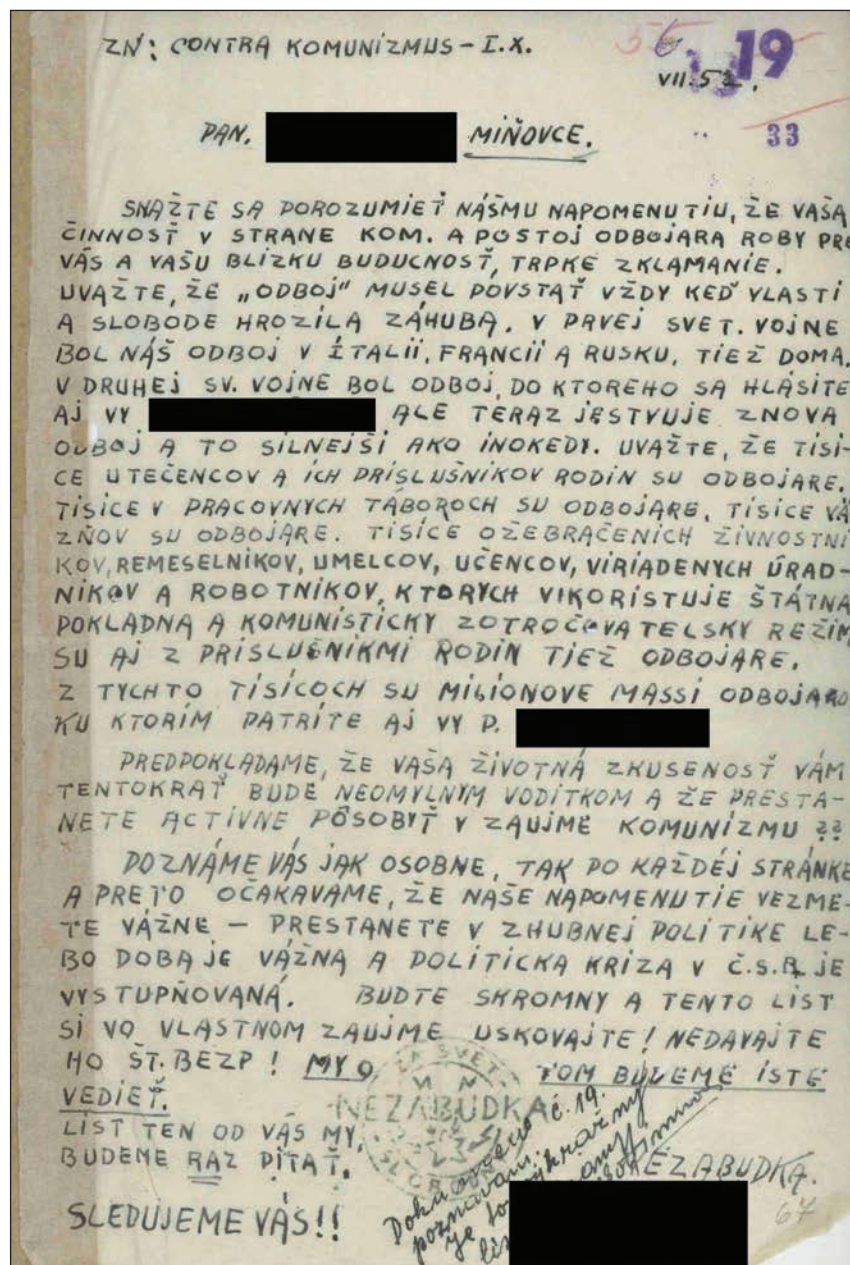 ZN: CONTRA KOMUNIZMUS - I.X.
19
VII.52.
33
PAN. MIŇOVCE.
SNAŽTE SA POROZUMIEŤ NÁŠMU NAPOMENUTIU, ŽE VAŠA
ČINNOSŤ V STRANE KOM. A POSTOJ ODBOJARA ROBY PRE
VÁS A VAŠU BLÍZKU BUDUCNOSŤ, TRPKÉ ZKLAMANIE.
UVAŽTE, ŽE „ODBOJ" MUSEL POVSTAŤ VŽDY KEĎ VLASTI
A SLOBODE HROZILA ZÁHUBA. V PRVEJ SVET. VOJNE
BOL NÁŠ ODBOJ V ÍTALII, FRANCII A RUSKU, TIEŽ DOMA.
V DRUHEJ SV. VOJNE BOL ODBOJ, DO KTOREHO SA HLÁSITE
AJ VY ALE TERAZ JESTVUJE ZNOVA
ODBOJ A TO SILNEJŠÍ AKO INOKEDY. UVAŽTE, ŽE TISÍ-
CE UTEČENCOV A ICH PRÍSLUŠNIKOV RODIN SU ODBOJARE.
TISÍCE V PRACOVNYCH TÁBOROCH SU ODBOJARE, TISÍCE VÄ
ZŇOV SU ODBOJARE. TISÍCE OŽEBRAČENICH ŽIVNOSTNI
KOV, REMESELNÍKOV, UMELCOV, UČENCOV, VIRIADENYCH ÚRAD-
NIKOV A ROBOTNÍKOV, KTORYCH VIKORISTUJE ŠTÁTNA
POKLADNA A KOMUNISTICKY ZOTROČOVATELSKY REŽIM
SU AJ Z PRISLUŠNIKMI RODIN TIEŽ ODBOJARE.
Z TYCHTO TISÍCOCH SU MILIONOVE MASSI ODBOJARO
KU KTORÍM PATRÍTE AJ VY P.
PREDPOKLADAME, ŽE VAŠA ŽIVOTNÁ ZKUSENOSŤ VÁM
TENTOKRAŤ BUDE NEOMYLNYM VODÍTKOM A ŽE PRESTA-
NETE ACTIVNE PÔSOBYŤ V ZAUJME KOMUNIZMU ??
POZNÁME VÁS JAK OSOBNE, TAK PO KAŽDEJ STRÁNKE
A PRETO OČAKAVAME, ŽE NAŠE NAPOMENUTIE VEZME-
TE VÁŽNE – PRESTANETE V ZHUBNEJ POLITIKE LE-
BO DOBA JE VÁŽNA A POLITICKA KRIZA V Č.S.R. JE
VYSTUPŇOVANÁ. BUDTE SKROMNY A TENTO LIST
SI VO VLASTNOM ZAUJME USKOVAJTE! NEDAVAJTE
HO ŠT. BEZP! MY O TOM BUDEME ISTE
VEDIEŤ.
NEZABUDKA
LIST TEN OD VÁS MY,
BUDEME RAZ PÍTAŤ.
NEZABUDKA.
č. 19.
poznávam.
67
SLEDUJEME VÁS!!